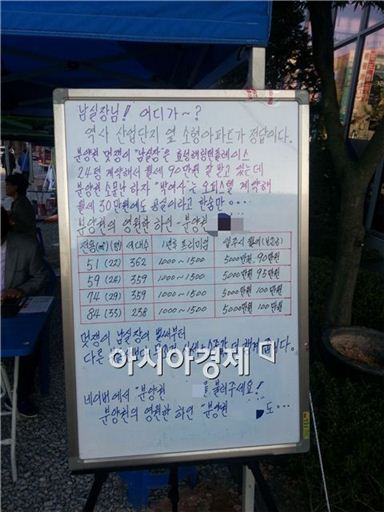 남실장님! 어디가~?
역시 산업단지 옆 소형아파트가 정답이다.
분양권 멋쟁이 "남실장"은 효성해링턴플레이스
24평 계약해서 월세 90만원 잘 받고 있는데
분양권 소문난 하자 "박여사"는 오피스텔 계약해
월세 30만원에도 공실이라고 한숨만…
분양권의 영원한 하수 - 분양권
전용(㎡)(평) 세대수 1년후 프리미엄 입주시 월세(보증금)
51 (22) 362 1000~1500 5000만원 90만원
59 (24) 359 1000~1500 5000만원 95만원
74 (29) 359 1000~1500 5000만원 100만원
84 (33) 238 1000~1500 5000만원 100만원
멋쟁이 남실장이 벌써부터
다른
아시아경제
네이버에서 "분양권 를 불러주세요!
분양권의 영원한 하수 "분양권 도…